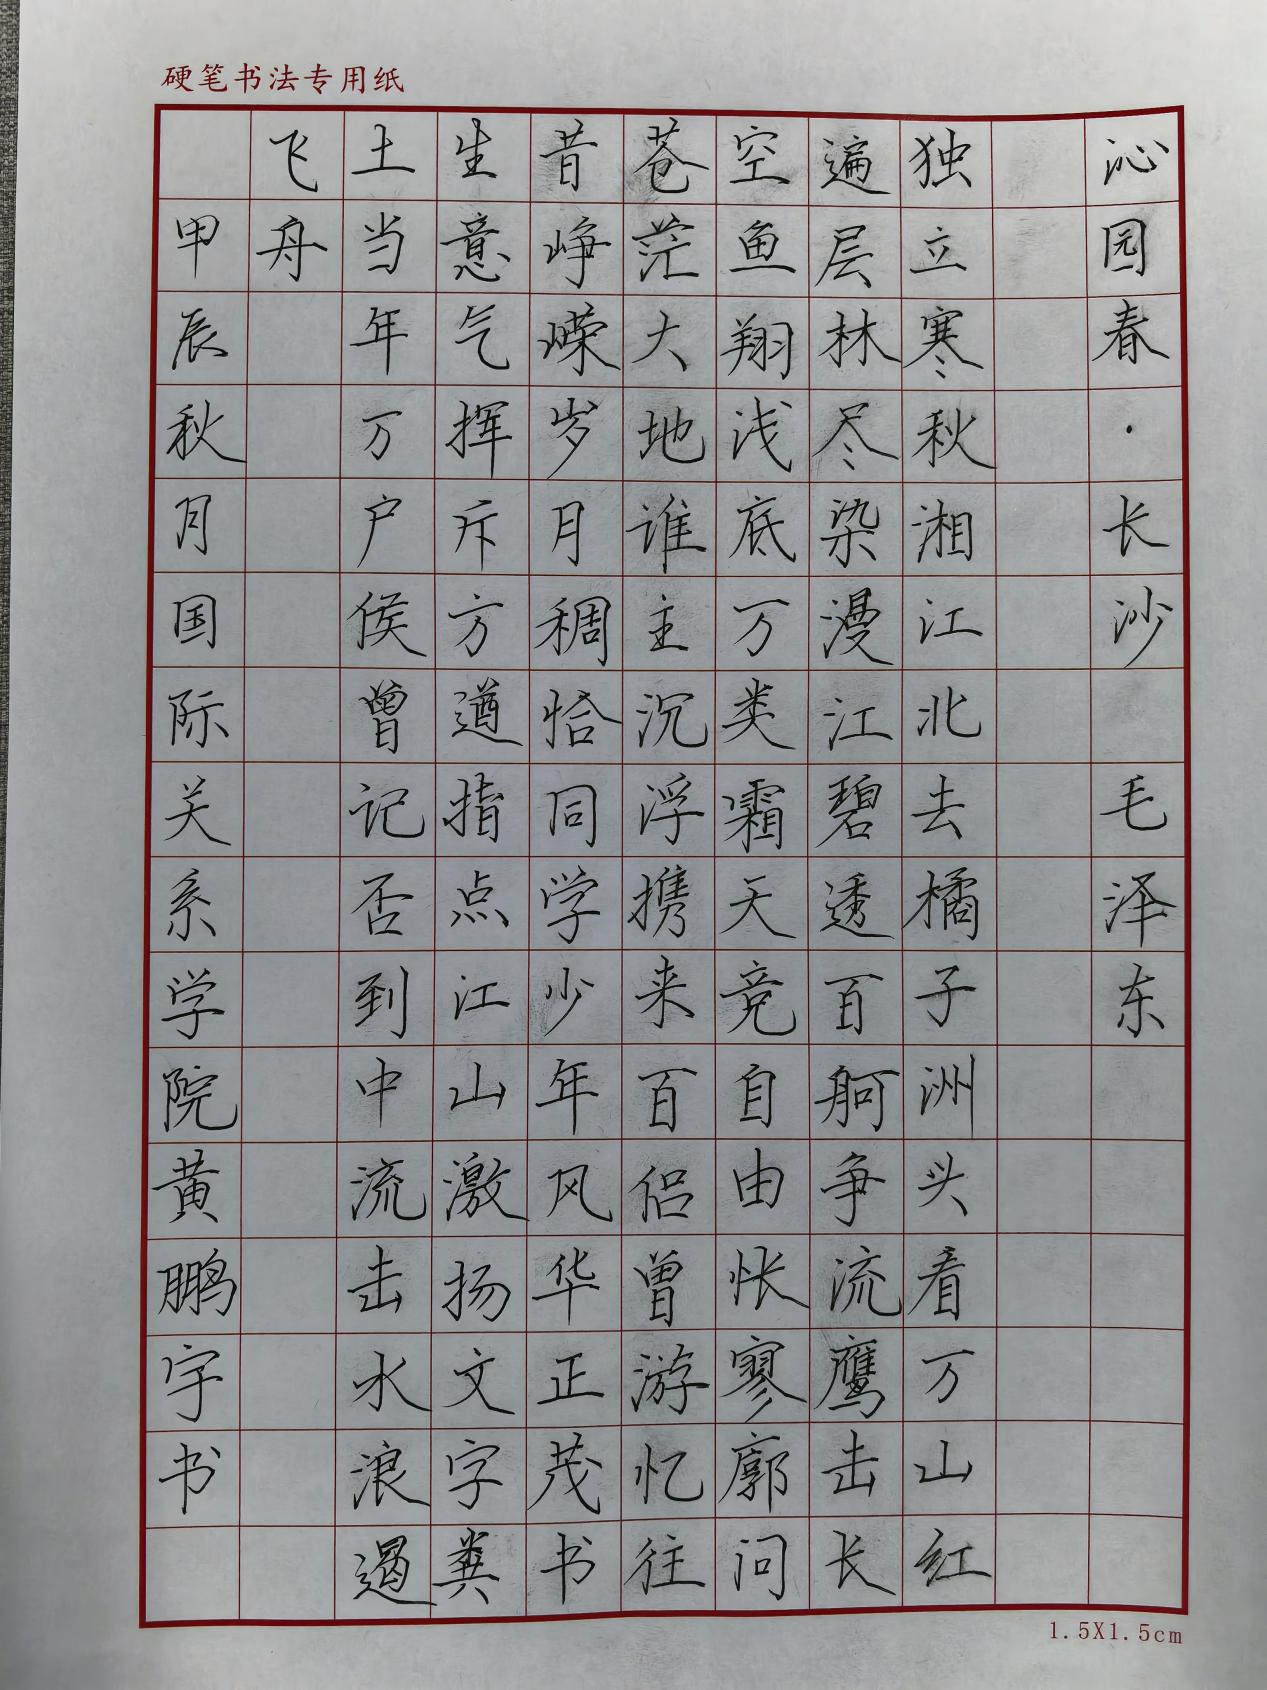 硬笔书法专用纸
沁园春·长沙毛泽东
独立寒秋湘江北去橘子洲头看万山红
遍层林尽染漫江碧透百舸争流鹰击长
空鱼翔浅底万类霜天竞自由怅寥廓问
苍茫大地谁主沉浮携来百侣曾游忆往
昔峥嵘岁月稠恰同学少年风华正茂书
生意气挥斥方遒指点江山激扬文字粪
土当年万户侯曾记否到中流击水浪遏
飞舟
甲辰秋月国际关系学院黄鹏宇书
1.5X1.5cm